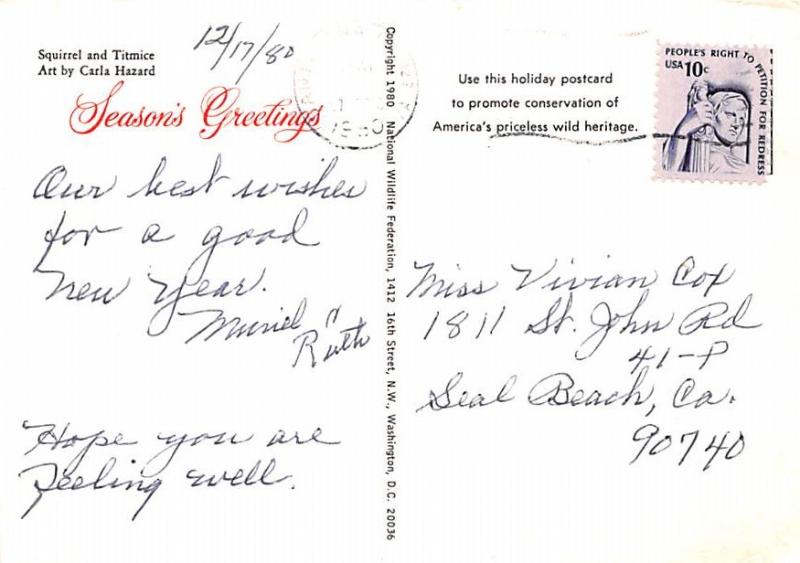 12/17/80
Squirrel and Titmice
Art by Carla Hazard
Season's Greetings
Our best wishes
for a good
New Year.
Muriel "
Ruth
Hope you are
feeling well.
Copyright 1980 National Wildlife Federation, 1412 16th Street, N.W., Washington, D.C. 20036
1980
Use this holiday postcard
to promote conservation of
America's priceless wild heritage.
PEOPLE'S RIGHT TO PETITION FOR REDRESS
USA 10c
Miss Vivian Cox
1811 St. John Rd
41-P
Seal Beach, Ca.
90740